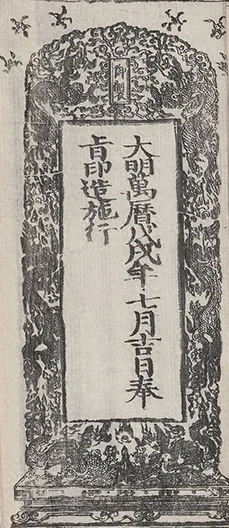 御製
大明萬曆戊戌年七月吉日奉
㫖印造施行